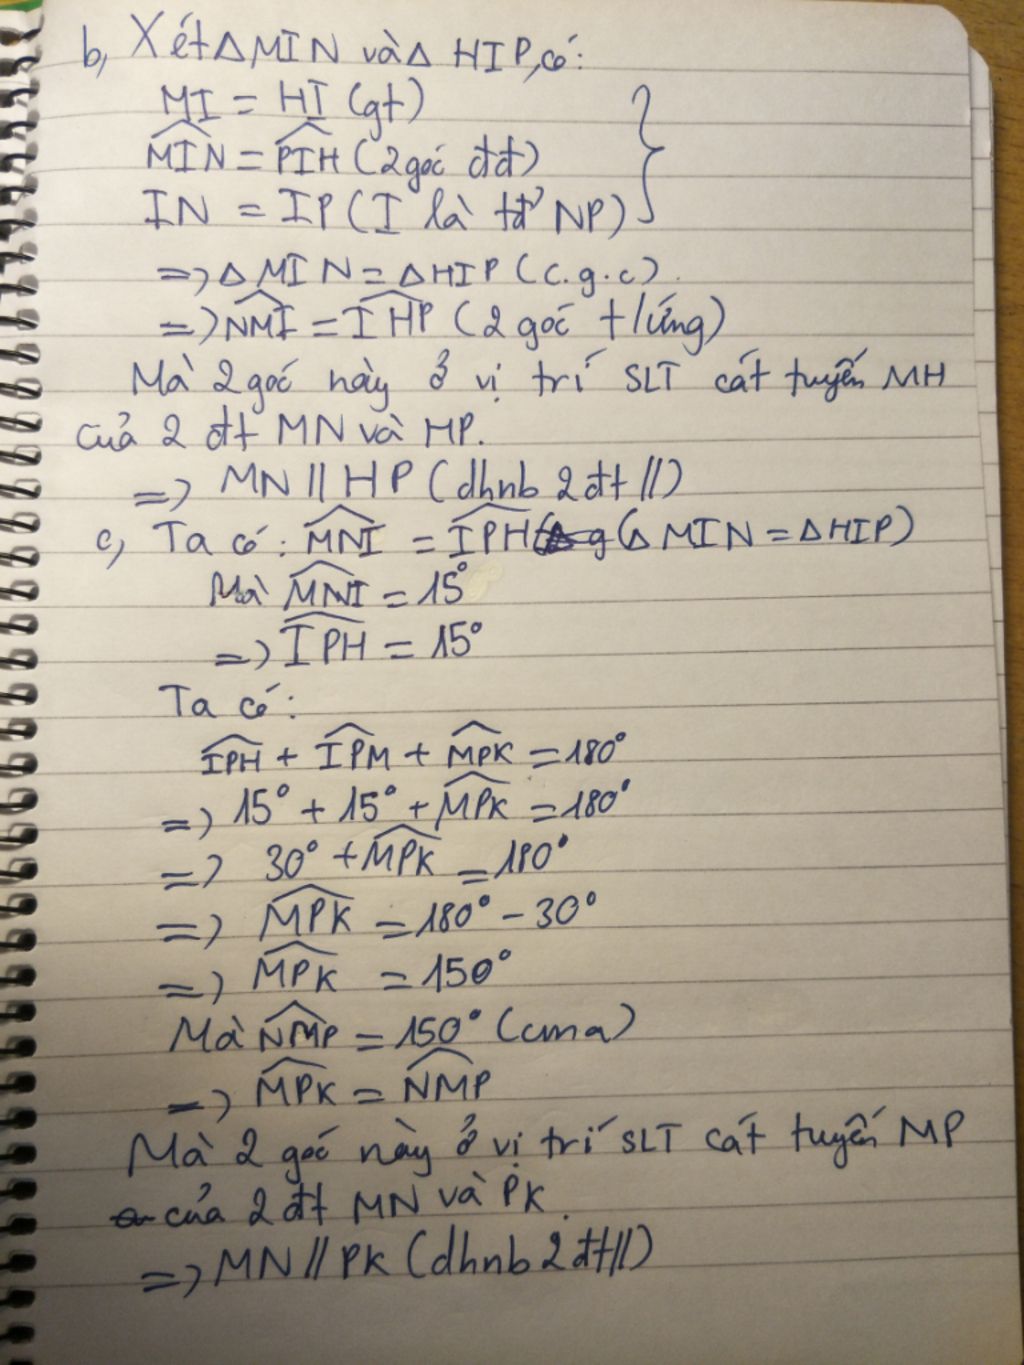 b, Xét △MIN và △ HIP, có:
MI = HI (gt)
∠MIN = ∠PIH (2 góc đđ)
IN = IP (I là tđ NP)
=> △ MIN = △HIP (c.g.c).
=> ∠NMI = ∠IHP (2 góc t/ứng)
Mà 2 góc này ở vị trí SLT cát tuyến MH
của 2 đt MN và HP.
=> MN // HP (dhnb 2đt //)
c, Ta có: ∠MNI = ∠IPH (△ MIN = △HIP)
Mà ∠MNI = 15°
=> ∠IPH = 15°
Ta có:
∠IPH + ∠IPM + ∠MPK = 180°
=> 15° + 15° + ∠MPK = 180°
=> 30° + ∠MPK = 180°
=> ∠MPK = 180° - 30°
=> ∠MPK = 150°
Mà ∠NMP = 150° (cma)
=> ∠MPK = ∠NMP
Mà 2 góc này ở vị trí SLT cát tuyến MP
của 2 đt MN và PK.
=> MN // PK (dhnb 2đt//)